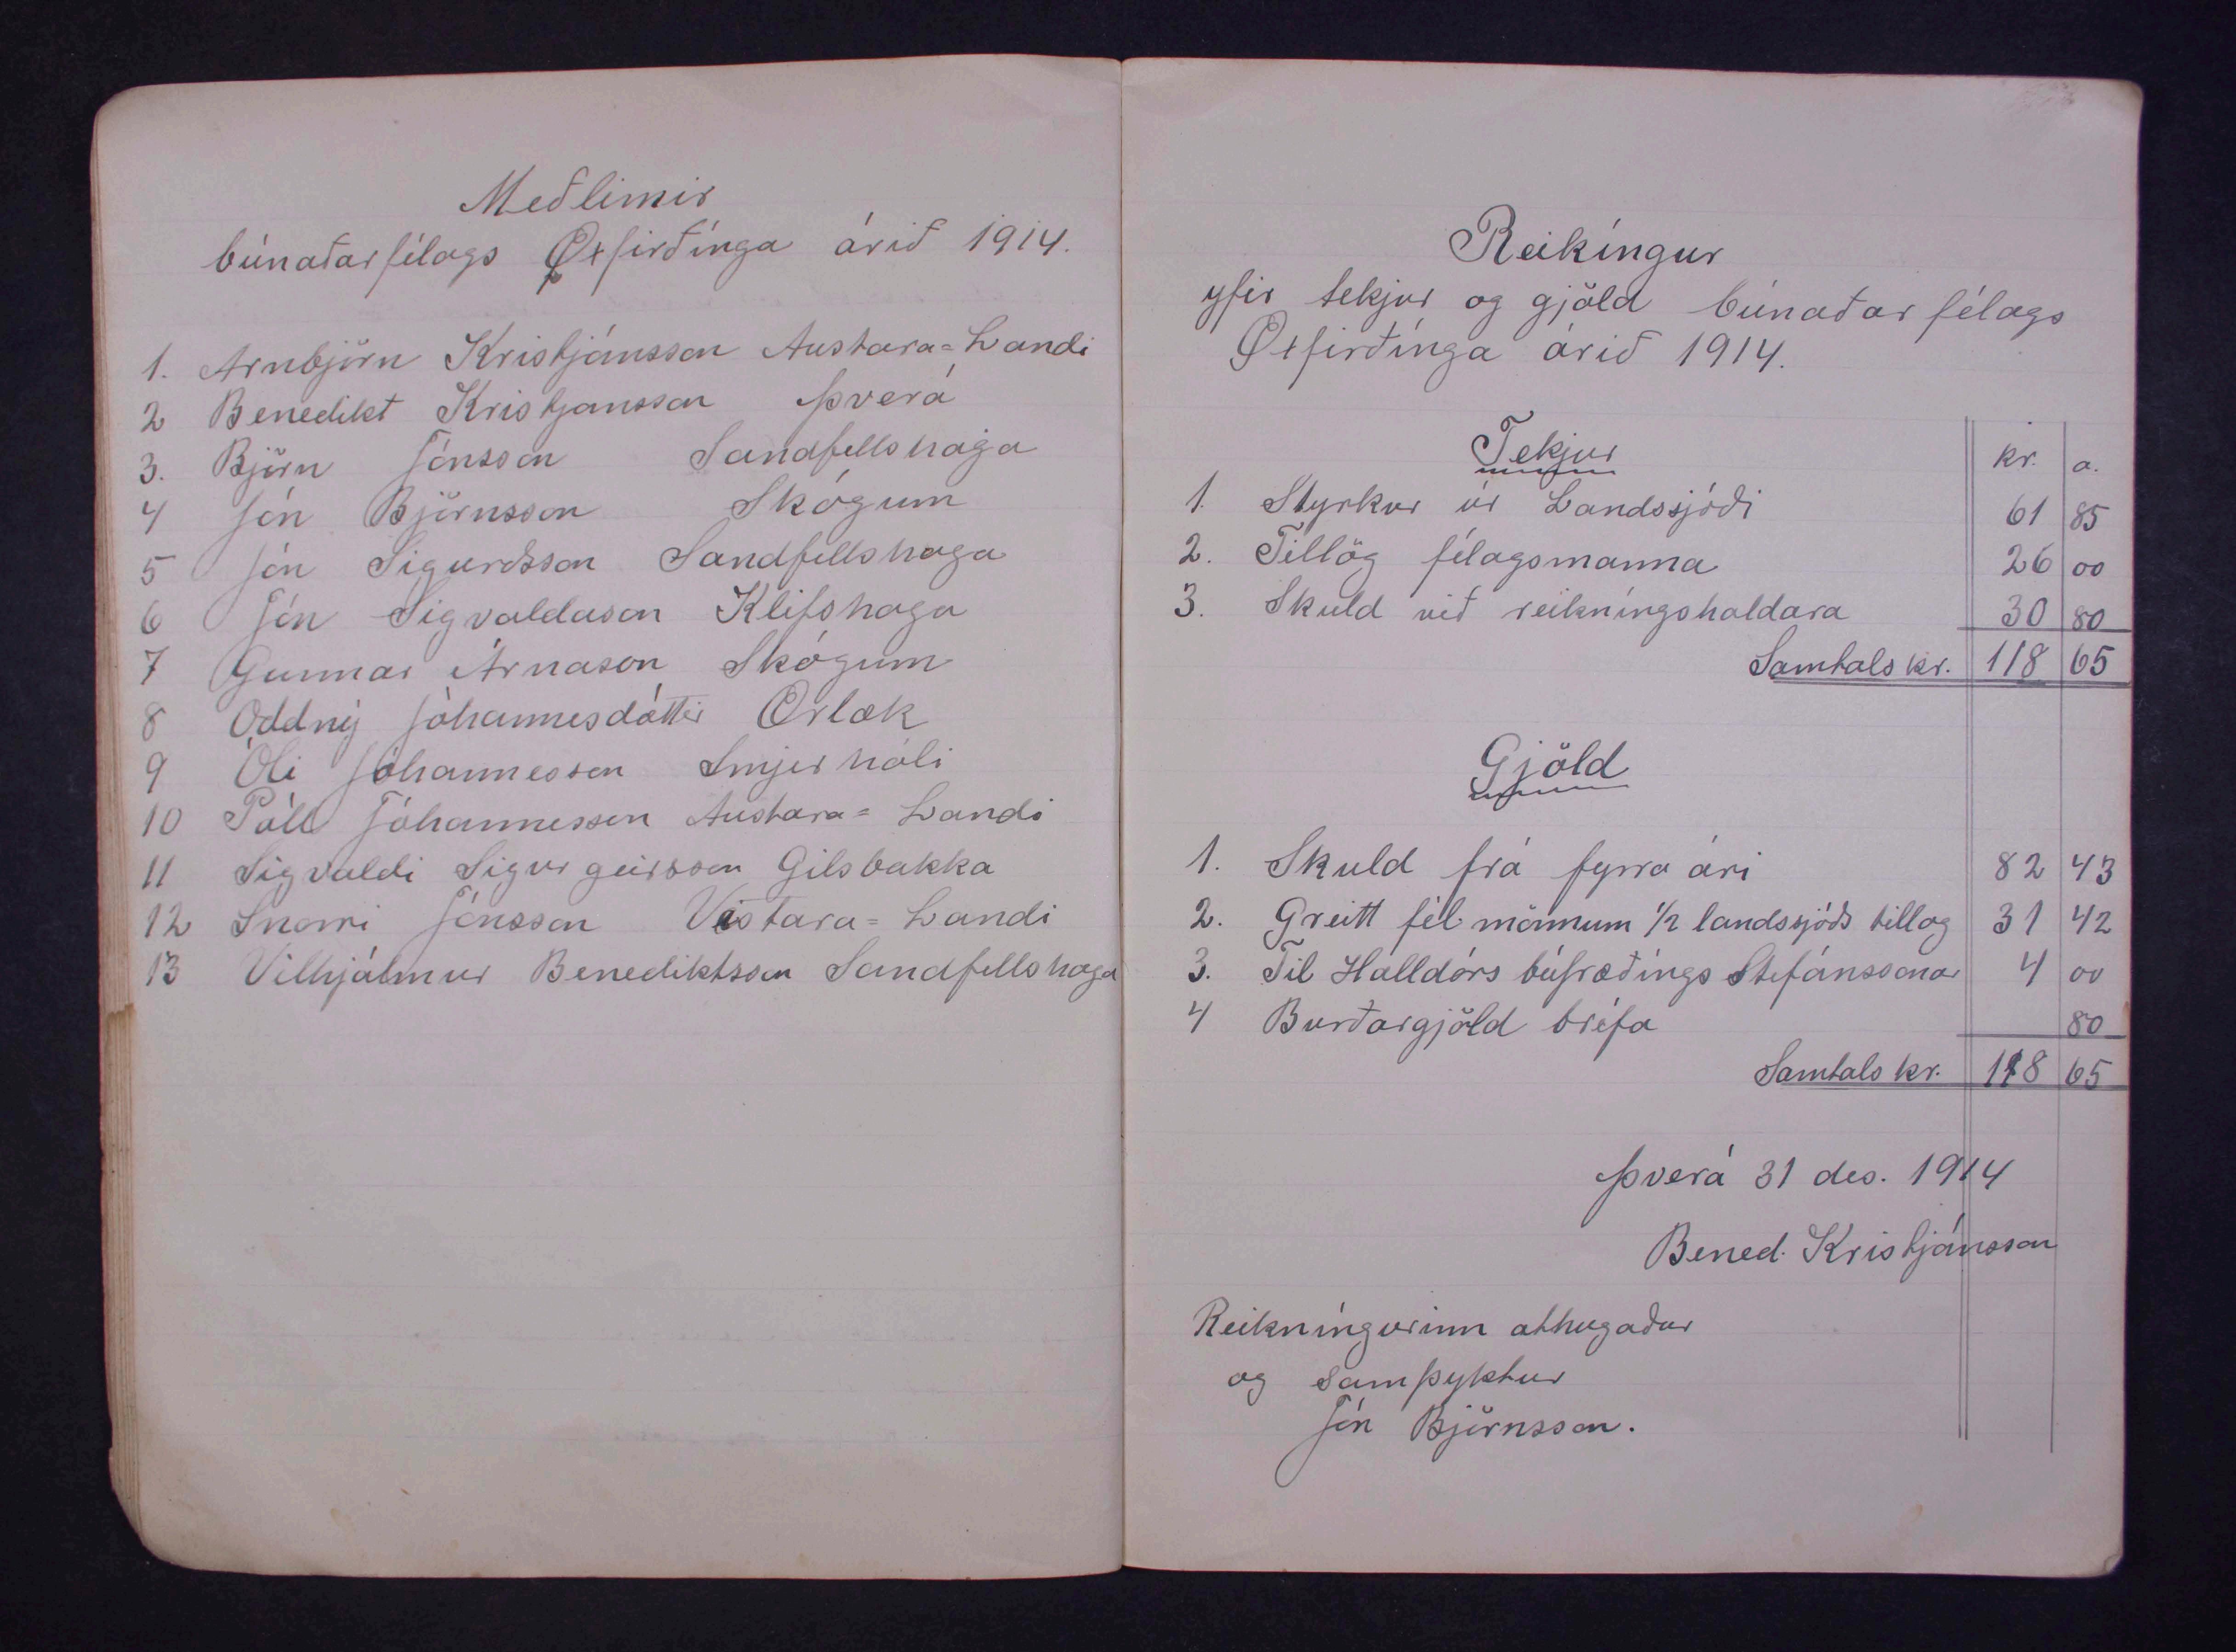 Meðlimir
búnaðarfélags Øxfirðínga árið 1914.
1. Arnbjörn Kristjánsson Austara=Landi
2 Benedikt Kristjansson Þverá
3. Björn Jónsson Sandfellshaga
4 Jón Björnsson Skógum
5 Jón Sigurðsson Sandfellshaga
6 Jón Sigvaldason Klifshaga
7 Gunnar Árnason Skógum
8 Oddný Jóhannesdóttir Ørlæk
9 Óli Jóhannesson Smjerhóli
10 Páll Jóhannesson Austara=Landi
11 Sigvaldi Sigurgeirsson Gilsbakka
12 Snorri Jónsson Vestara=Landi
13 Vilhjálmur Benediktsson Sandfellshaga
Reikíngur
yfir tekjur og gjöld búnaðarfélags
Øxfirðínga árið 1914.
Tekjur kr. a.
1. Styrkur úr Landssjóði 61 85
2. Tillög félagsmanna 26 00
3. Skuld við reikníngshaldara 30 80
Samtals kr. 118 65
Gjöld
1. Skuld frá fyrra ári 82 43
2. Greitt fél. mönnum 1/2 landssjóðs tillag 31 42
3. Til Halldórs búfræðings Stefánssonar 4 00
4 Burðargjöld bréfa 80
Samtals kr. 118 65
Þverá 31 des. 1914
Bened. Kristjánsson
Reikníngurinn athugaður
og samþyktur
Jón Björnsson.